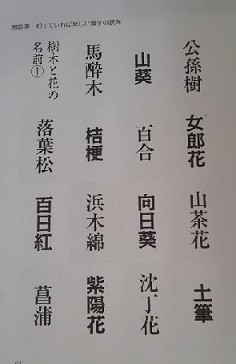 知っていれば楽しい漢字の読み
公孫樹
女郎花
山茶花
土筆
山葵
百合
向日葵
沈丁花
馬酔木
桔梗
浜木綿
紫陽花
樹木と花の
名前①
落葉松
百日紅
菖蒲